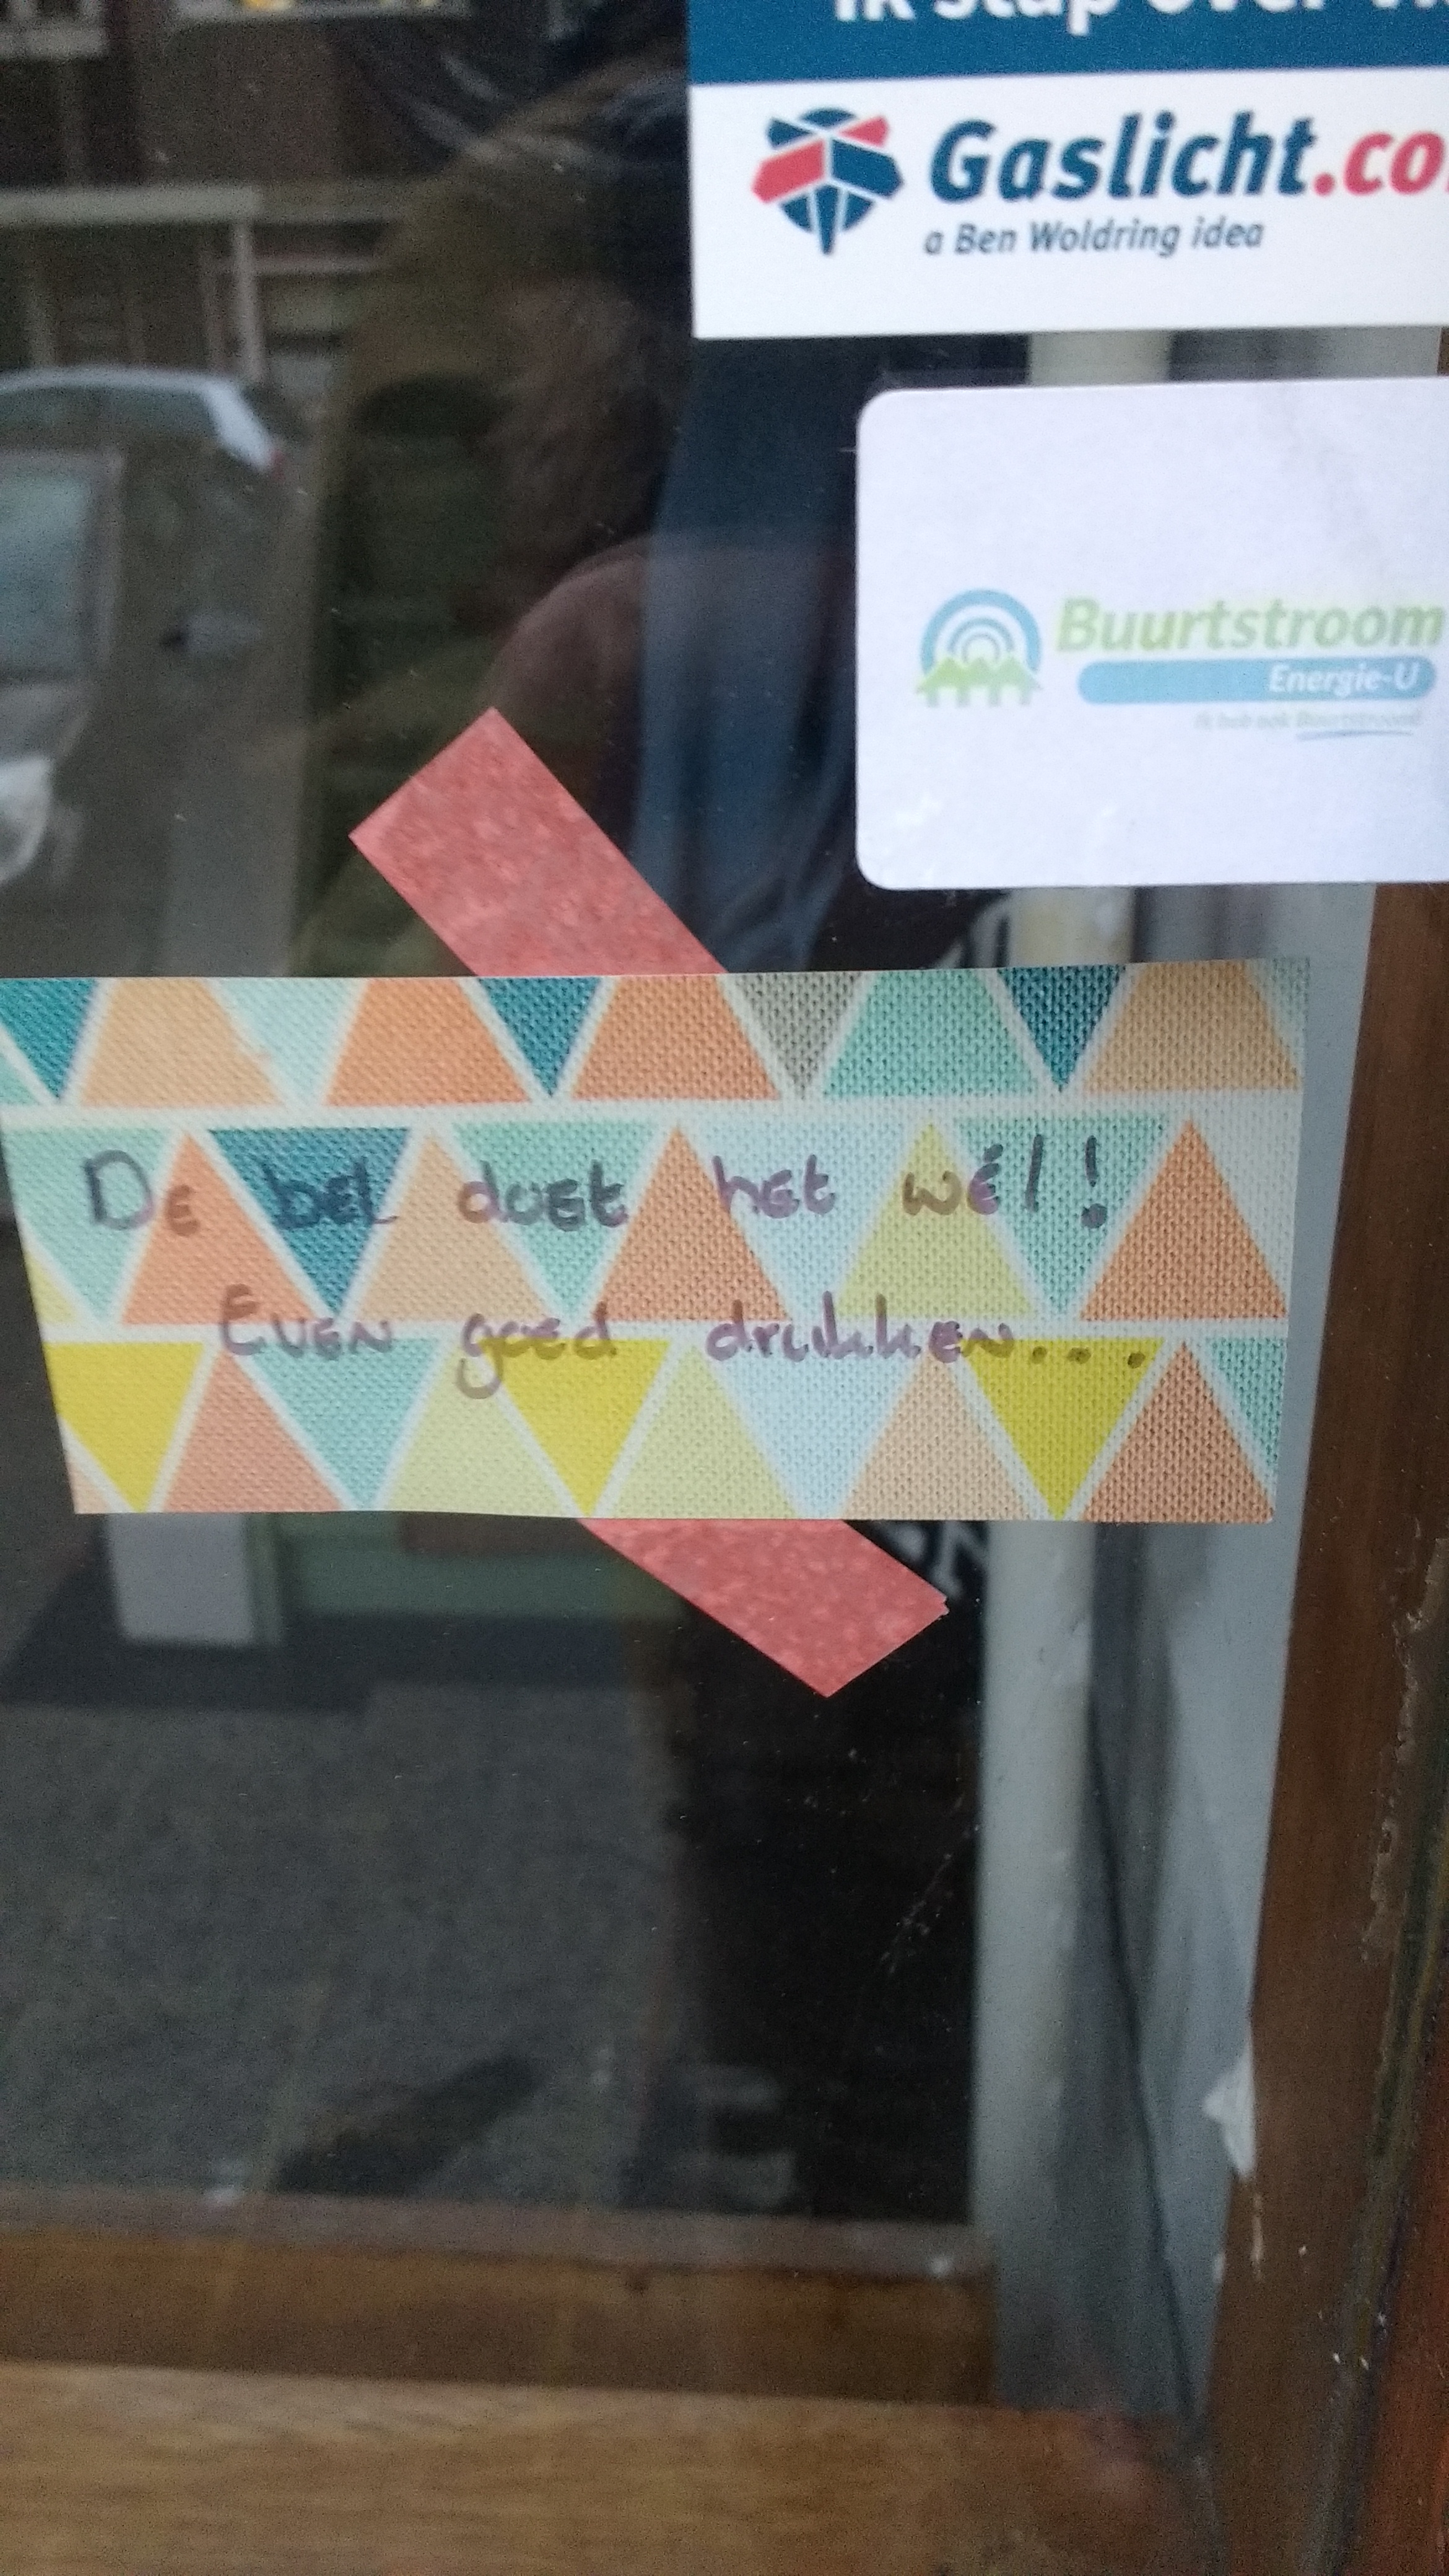 Ik stap over
Gaslicht.co
a Ben Woldring idea
Buurtstroom
Energie-U
Ik heb ook Buurtstroom!
De bel doet het wél!
Even goed drukken...